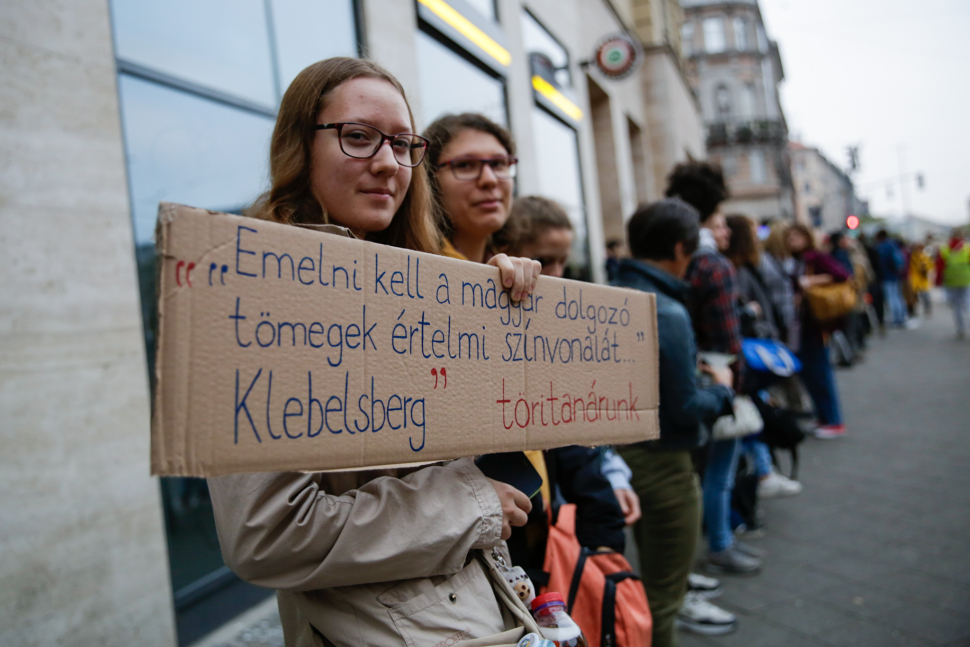 “ „Emelni kell a magyar dolgozó
tömegek értelmi színvonalát...”
Klebelsberg” töritanárunk